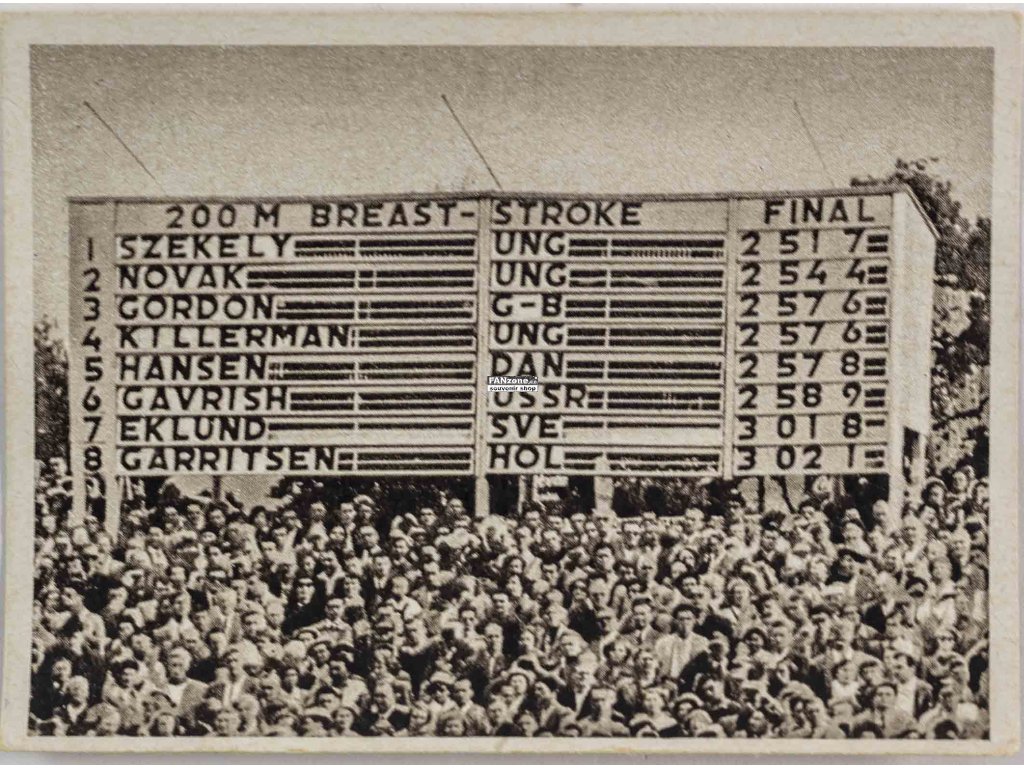 200 M BREAST-STROKE FINAL
1 SZEKELY UNG 2 51 7
2 NOVAK UNG 2 54 4
3 GORDON G-B 2 57 6
4 KILLERMAN UNG 2 57 6
5 HANSEN DAN 2 57 8
6 GAVRISH USSR 2 58 9
7 EKLUND SVE 3 01 8
8 GARRITSEN HOL 3 02 1
FANzone
souvenir shop